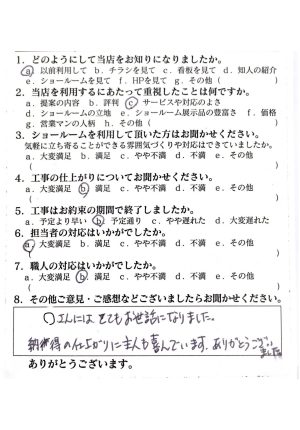 1．どのようにして当店をお知りになりましたか。
a．以前利用して b．チラシを見て c．看板を見て d．知人の紹介
e．ショールームを見て f．HPを見て g．その他（
2．当店を利用するにあたって重視したことは何ですか。
a．提案の内容 b．評判 c．サービスや対応のよさ
d．ショールームの立地 e．ショールーム展示品の豊富さ f．価格
g．営業マンの人柄 h．その他（ ）
3．ショールームを利用して頂いた方はお聞かせください。
気軽に立ち寄ることができる雰囲気づくりや対応はできていましたか。
a．大変満足 b．満足 c．やや不満 d．不満 e．その他
（ ）
4．工事の仕上がりについてお聞かせください。
a．大変満足 b．満足 c．やや不満 d．不満 e．その他
（ ）
5．工事はお約束の期間で終了しましたか。
a．予定より早い b．予定通り c．やや遅れた d．大変遅れた
6．担当者の対応はいかがでしたか。
a．大変満足 b．満足 c．やや不満 d．不満 e．その他
（ ）
7．職人の対応はいかがでしたか。
a．大変満足 b．満足 c．やや不満 d．不満 e．その他
（ ）
8．その他ご意見・ご感想などございましたらお聞かせください。
○さんには とてもお世話になりました。
納得の仕上がりに主人も喜んでいます。ありがとうござい
ました。
ありがとうございます。